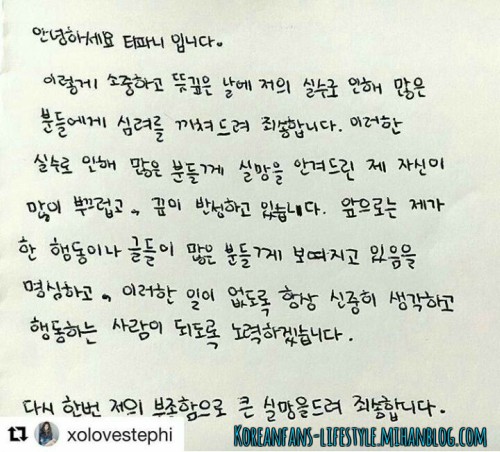 안녕하세요 티파니 입니다.
이렇게 소중하고 뜻깊은 날에 저의 실수로 인해 많은
분들에게 심려를 끼쳐드려 죄송합니다. 이러한
실수로 인해 많은 분들께 실망을 안겨드린 제 자신이
많이 부끄럽고, 깊이 반성하고 있습니다. 앞으로는 제가
한 행동이나 글들이 많은 분들께 보여지고 있음을
명심하고, 이러한 일이 없도록 항상 신중히 생각하고
행동하는 사람이 되도록 노력하겠습니다.
다시 한번 저의 부족함으로 큰 실망을드려 죄송합니다.
xolovestephi
KOREANFANS-LIFESTYLE.MIHANBLOG.COM